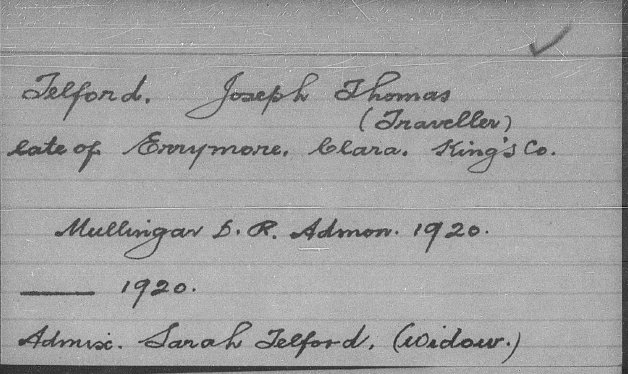 Telford. Joseph Thomas
(Traveller)
late of Errymore. Clara. King's Co.
Mullingar D. R. Admon. 1920.
—— 1920.
Admix. Sarah Telford, (Widow.)